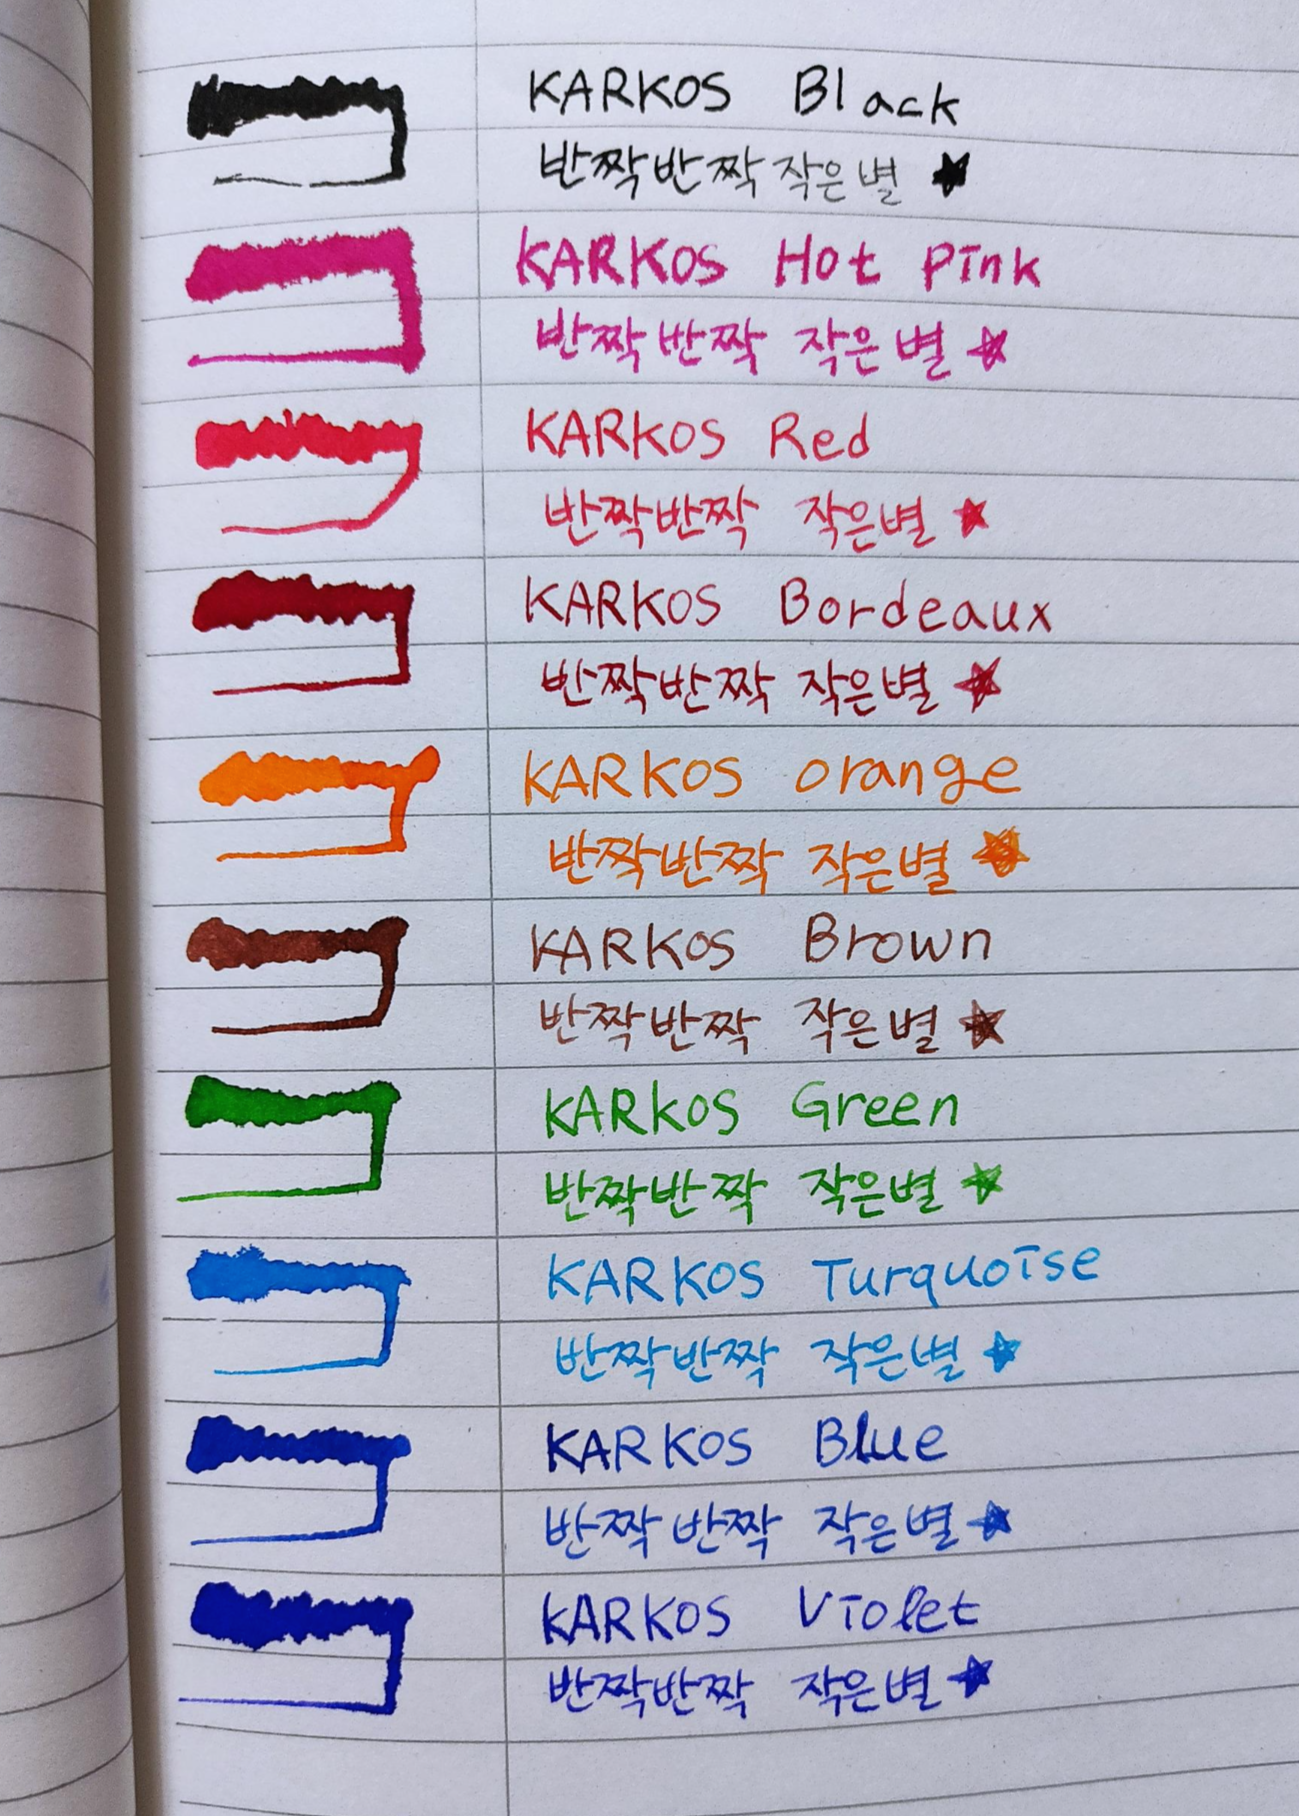 KARKOS Black
반짝반짝 작은별 ★
KARKOS Hot pink
반짝반짝 작은별 ★
KARKOS Red
반짝반짝 작은별 ★
KARKOS Bordeaux
반짝반짝 작은별 ★
KARKOS orange
반짝반짝 작은별 ★
KARKOS Brown
반짝반짝 작은별 ★
KARKOS Green
반짝반짝 작은별 ★
KARKOS Turquoise
반짝반짝 작은별 ★
KARKOS Blue
반짝반짝 작은별 ★
KARKOS Violet
반짝반짝 작은별 ★